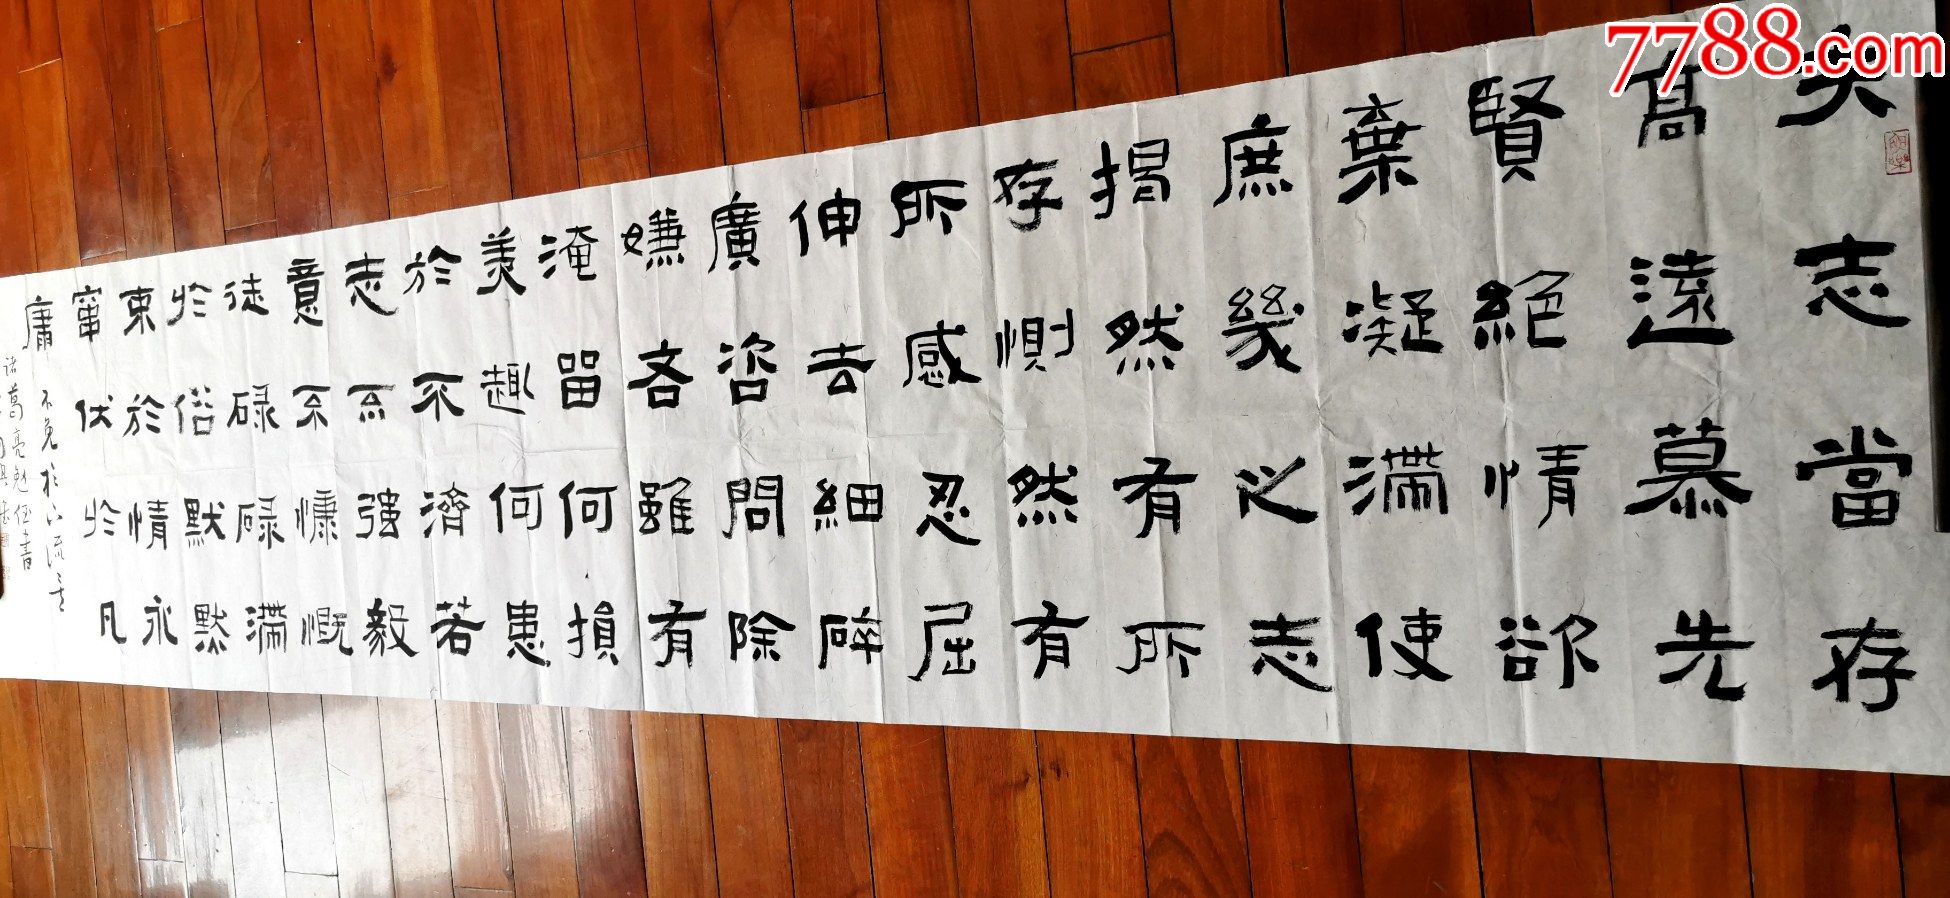 夫志當存
高遠慕先
賢絕情欲
棄凝滯使
庶幾之志
揭然有所
存惻然有
所感忍屈
伸去細碎
廣咨問除
嫌吝雖有
淹留何損
美趣何患
於不濟若
志不强毅
意不慷慨
徒碌碌滯
於俗默默
束於情永
竄伏於凡
庸
不免於下流矣
諸葛亮勉侄書
7788.com